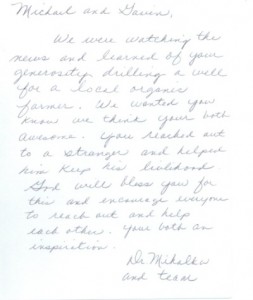 Michael and Gavin,
We were watching the
news and learned of your
generosity drilling a well
for a local organic
farmer. We wanted you
know we think your both
awesome. You reached out
to a stranger and helped
him keep his livlihood
God will bless you for
this and encourage everyone
to reach out and help
each other. your both an
inspiration.
Dr Mihalka
and team